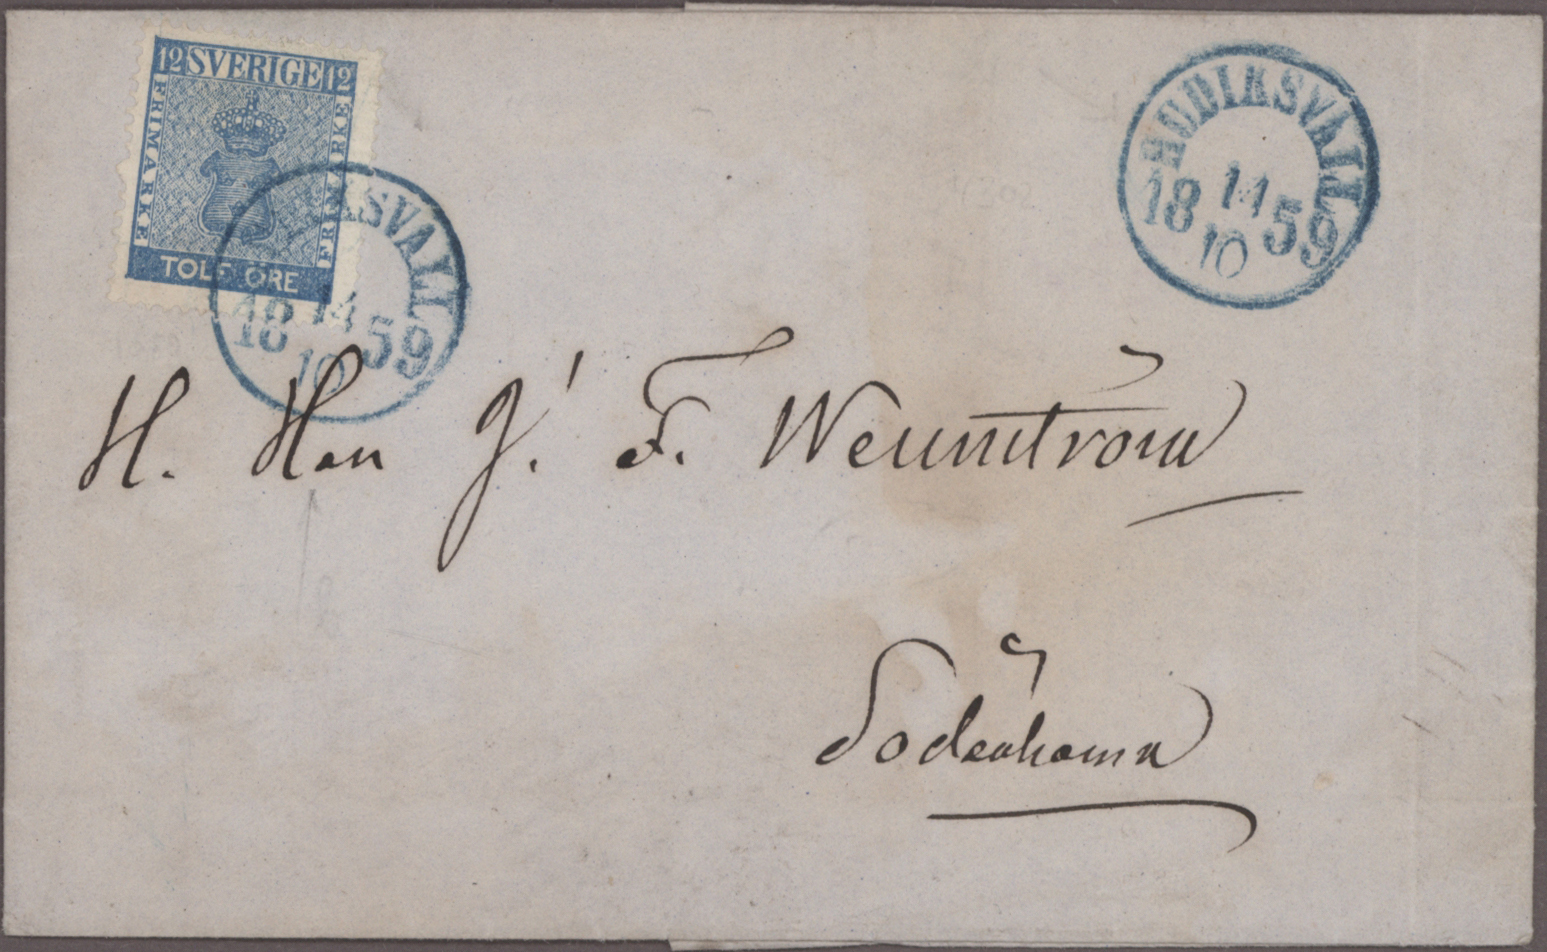 12 SVERIGE 12
FRIMÄRKE
FRIMÄRKE
TOLF ÖRE
HUDIKSVALL
18 14 59
10
KSVALL
18 14 59
10
H. Han J. F. Wennström
Söderhamn